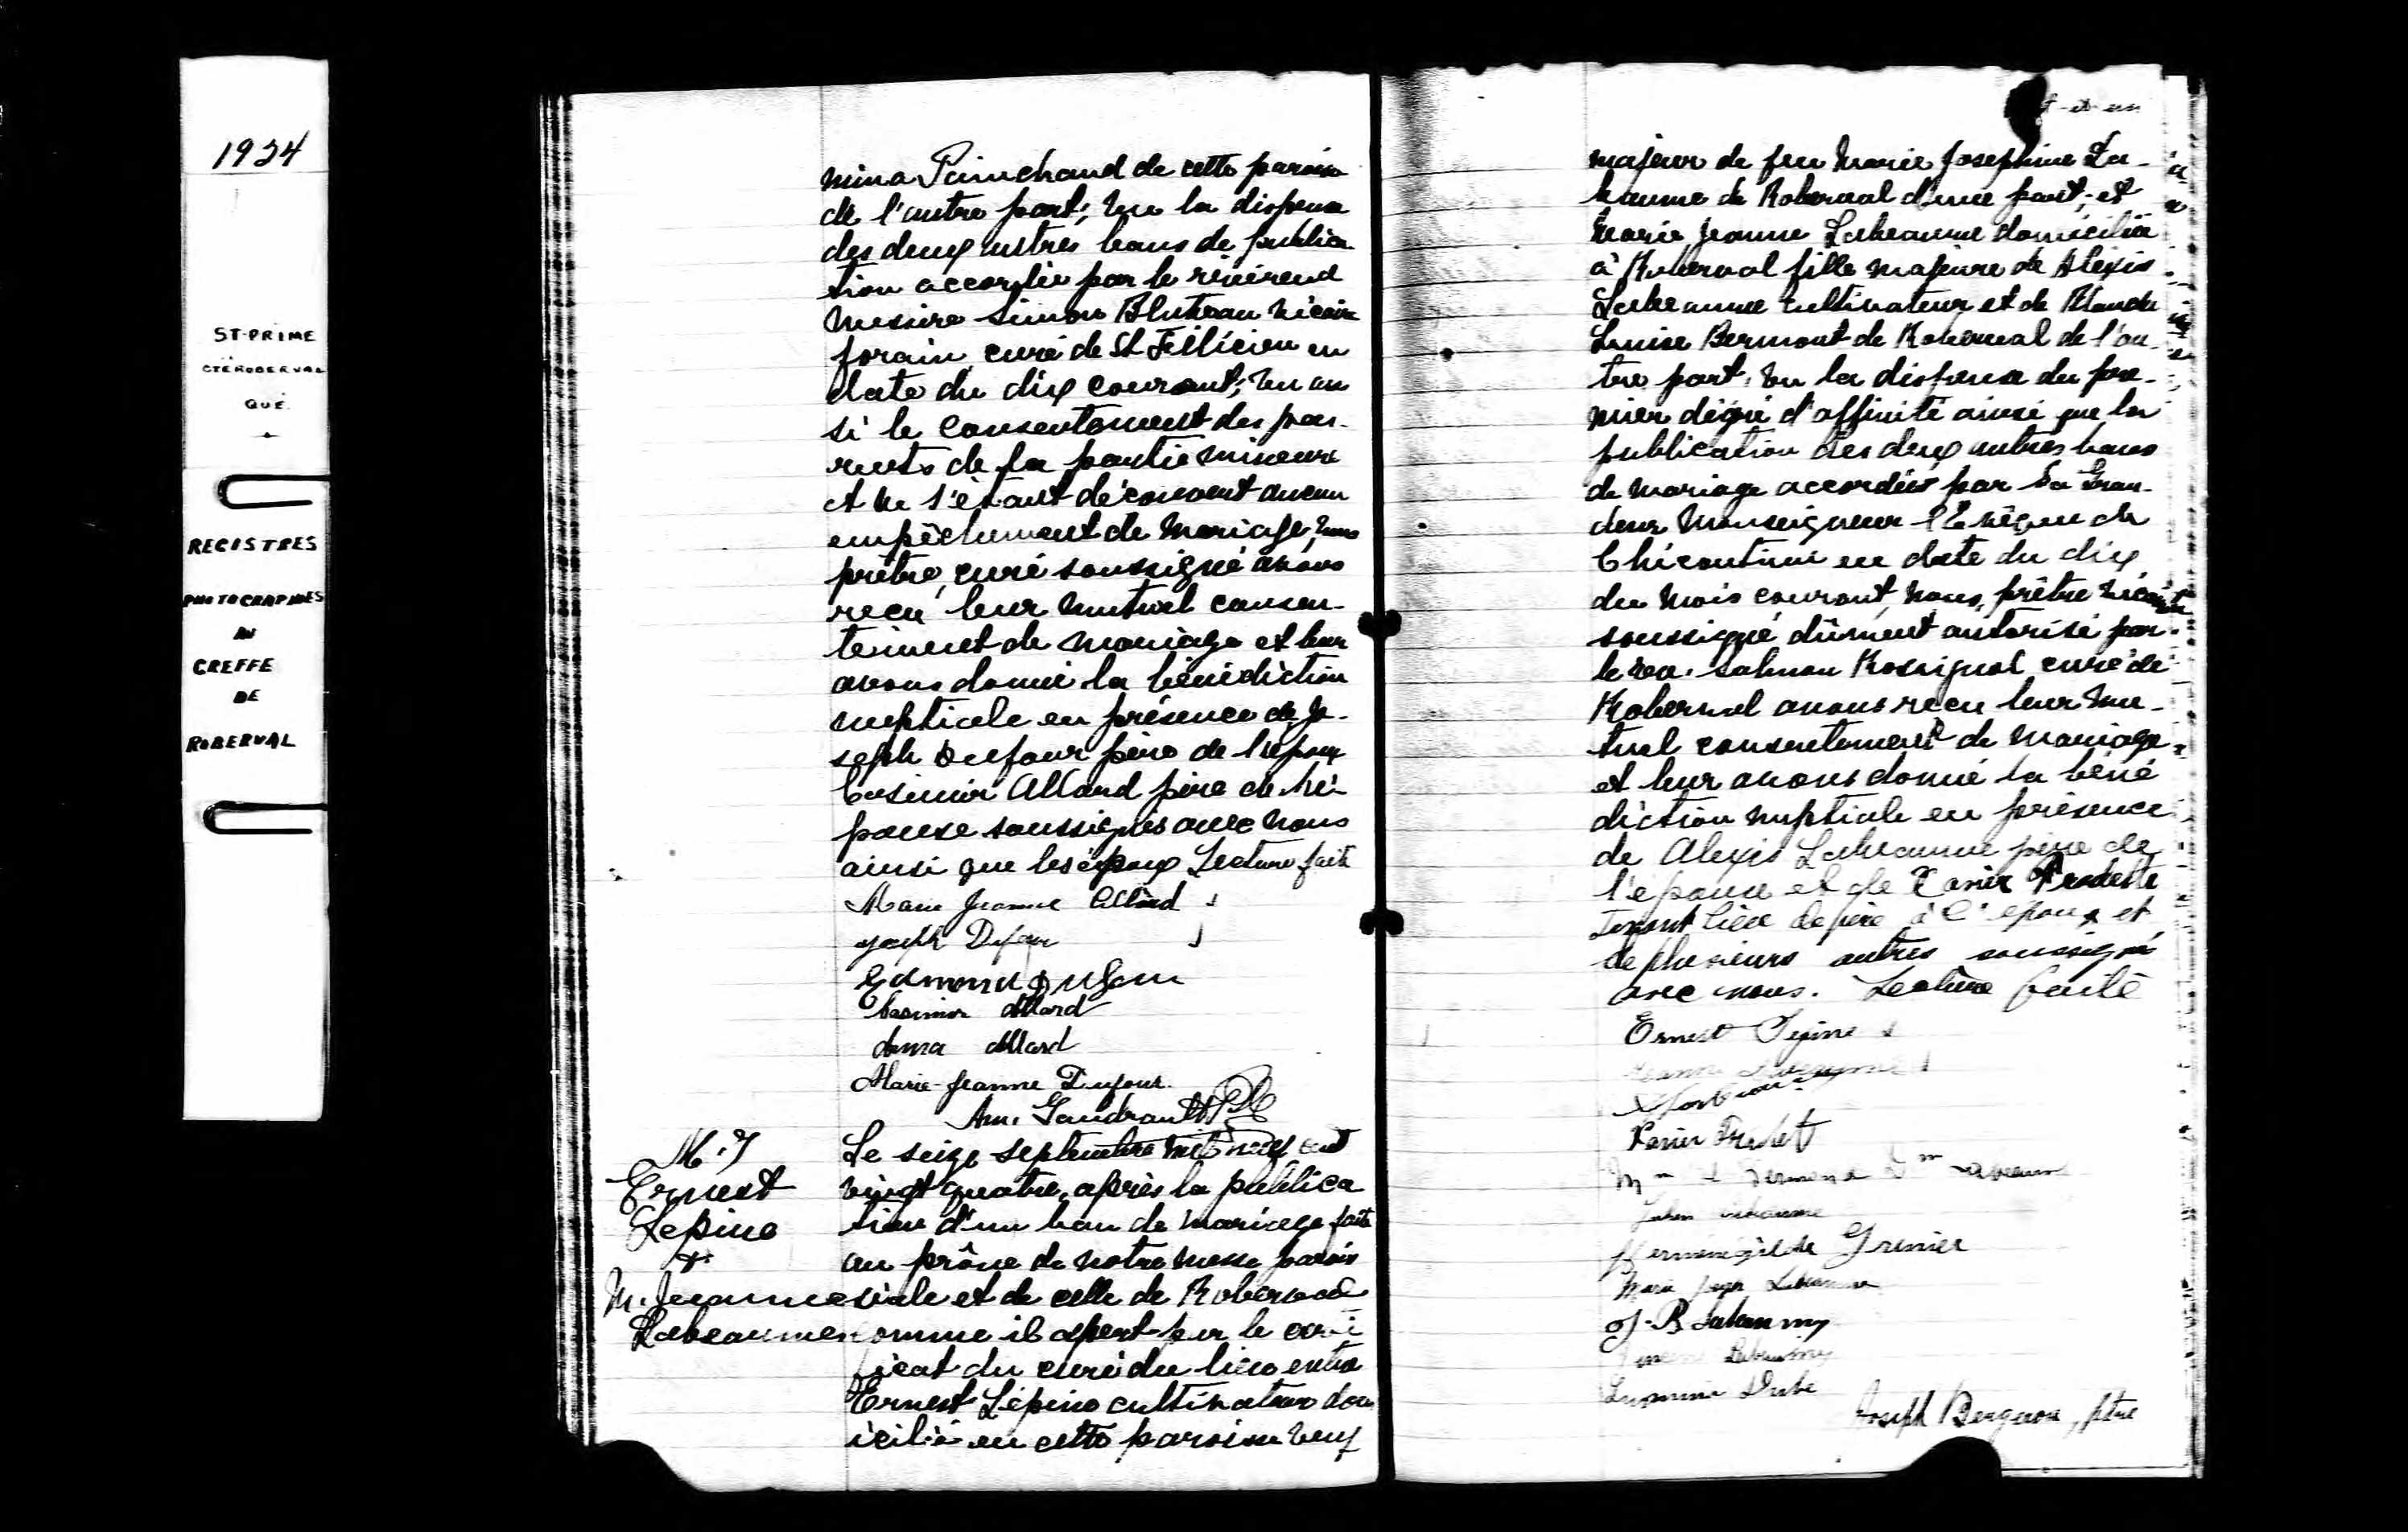 1924
ST-PRIME
CTÉ ROBERVAL
QUÉ.
REGISTRES
PHOTOGRAPHIÉS
AU
GREFFE
DE
ROBERVAL
mina Painchaud de cette paroisse
de l'autre part; vu la dispense
des deux autres bans de publica
tion accordée par le révérend
messire Simon Bluteau vicaire
forain, curé de St Félicien en
date du dix courant; vu aus
si le consentement des pa-
rents de la partie mineure
et ne s'étant découvert aucun
empêchement de mariage, nous
prêtre, curé soussigné avons
reçu leur mutuel consen-
tement de mariage et leur
avons donné la bénédiction
nuptiale en présence de Jo-
seph Dufour père de l'époux
Casimir Allard père de l'é-
pouse soussignés avec nous
ainsi que les époux Lecture faite
Marie Jeanne Allard
Joseph Dufour
Edmond Dufour
Casimir Allard
Allard
Marie-Jeanne Dufour
Am. Gaudrault Ptre
M. 7
Ernest
Lepine
&
M. Jeanne
Labeaume
Le seize septembre mil neuf cent
vingt quatre, après la publica
tion d'un ban de mariage faite
au prône de notre messe parois
siale et de celle de Roberval
comme il apert par le certi
ficat du curé du lieu entre
Ernest Lépine cultivateur dom
icilié en cette paroisse veuf
t-et-un
majeur de feu Marie Josephine La-
beaume de Roberval d'une part, et
Marie Jeanne Labeaume domiciliée
à Roberval fille majeure de Alexis
Labeaume cultivateur et de
Louise de Roberval de l'au-
tre part, vu la dispense du pre-
mier dégré d'affinité ainsi que la
publication des deux autres bans
de mariage accordées par Sa Gran-
deur Monseigneur l'Evêque de
Chicoutimi en date du dix
du mois courant, nous, prêtre vicaire
soussigné dûment autorisé par
le rév. Rossignol curé de
Roberval avons reçu leur mu-
tuel consentement de mariage
et leur avons donné la béné
diction nuptiale en présence
de Alexis Labeaume père de
l'epouse et de Xavier
tenant lieu de père à l'epoux et
de plusieurs autres soussignés
avec nous. Lecture faite
Ernest Lepine
Jeanne Labeaume
Xavier
Labeaume
Herménégilde Grenier
Marie Labeaume
J-B Labeaume
Labeaume
Dubé
Joseph Bergeron, ptre